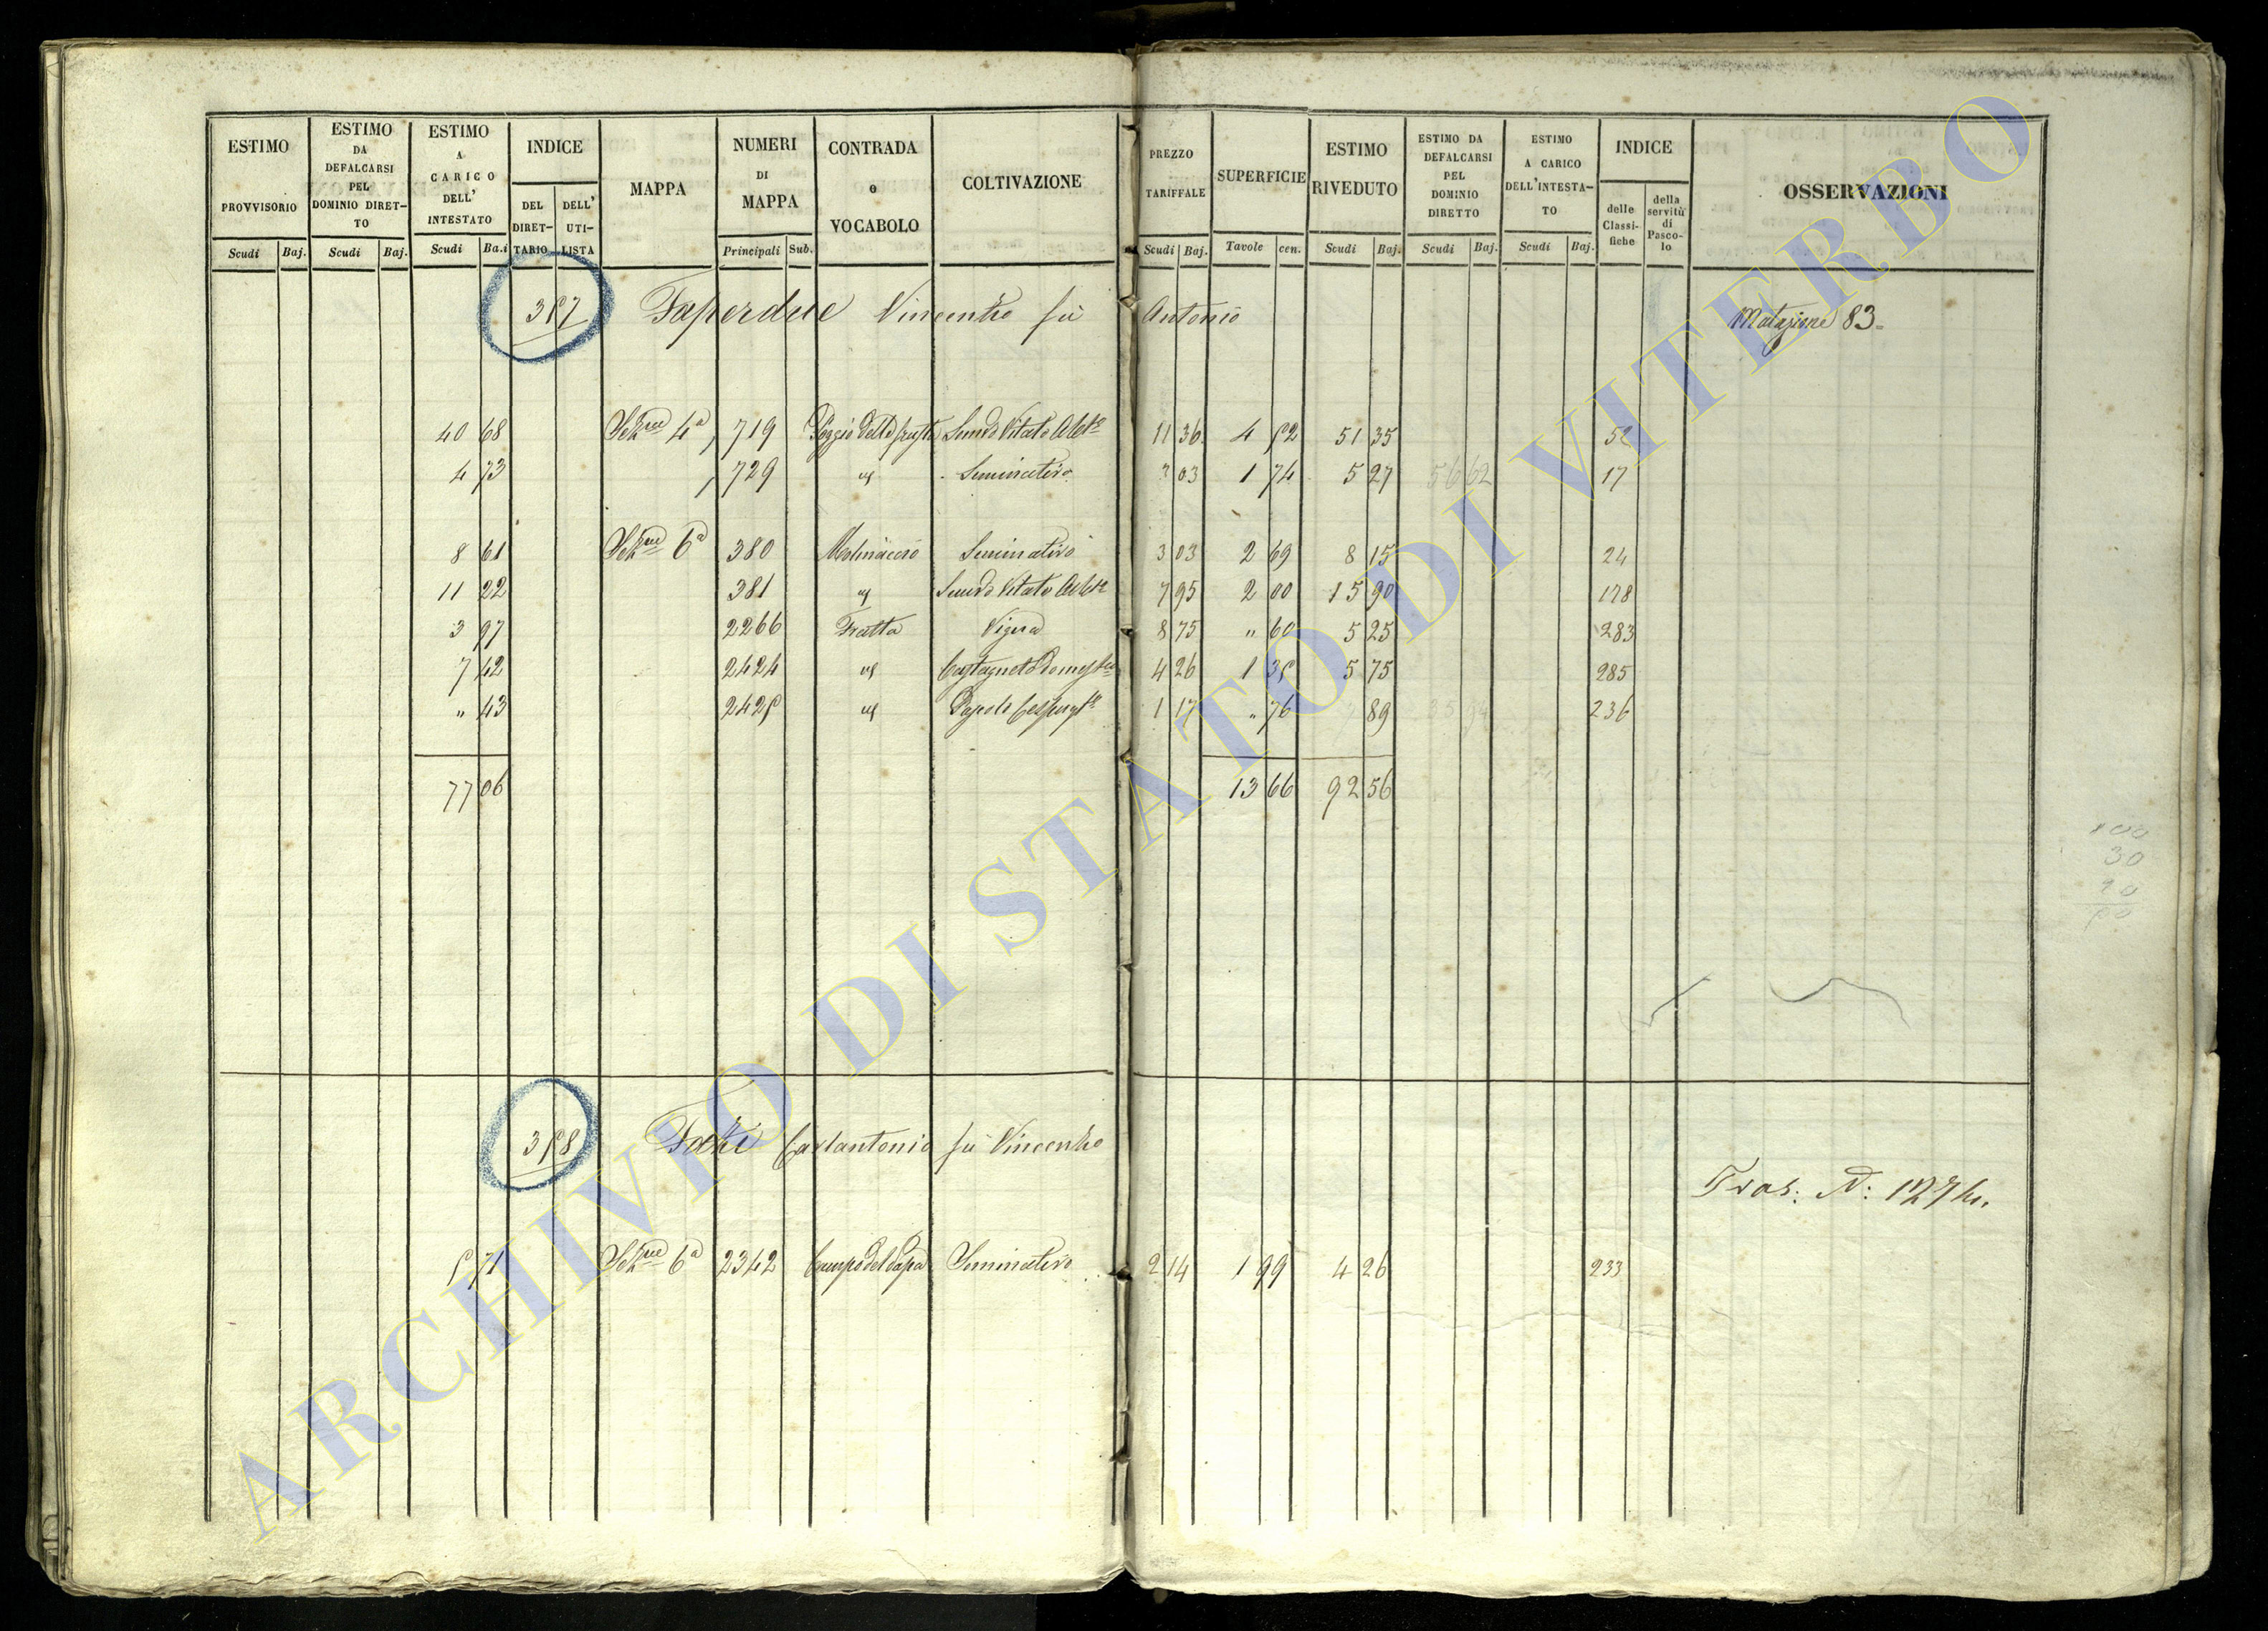 ESTIMO PROVVISORIO Scudi Baj.
ESTIMO DA DEFALCARSI PEL DOMINIO DIRETTO Scudi Baj.
ESTIMO A CARICO DELL' INTESTATO Scudi Ba.i
INDICE DEL DIRETTARIO DELL' UTILISTA
MAPPA
NUMERI DI MAPPA Principali Sub.
CONTRADA o VOCABOLO
COLTIVAZIONE
PREZZO TARIFFALE Scudi Baj.
SUPERFICIE Tavole cen.
ESTIMO RIVEDUTO Scudi Baj.
ESTIMO DA DEFALCARSI PEL DOMINIO DIRETTO Scudi Baj.
ESTIMO A CARICO DELL'INTESTATO Scudi Baj.
INDICE delle Classifiche della servitù di Pascolo
OSSERVAZIONI
357 Saperdue Vincenzo fù Antonio Mutazione 83
40 68 Sezne 4a 719 Semvo Vitato Albto 11 36 4 52 51 35
4 73 729 id Seminativo 3 03 1 74 5 27 56 62 17
8 61 Sezne 6a 380 Molinaccio Seminativo 3 03 2 69 8 15 24
11 22 381 id Semvo Vitato Albto 7 95 2 00 15 90 178
3 97 2266 Fratta Vigna 8 75 " 60 5 25 283
7 42 2424 id Castagneto Domestco 4 26 1 35 5 75 285
" 43 2425 id Pascolo Cespugto 1 17 " 76 89 236
77 06 13 66 92 56
30
358 Sarti Carlantonio fù Vincenzo
Tras: N: 127
5 71 Sezne 6a 2342 Campo del Papa Seminativo 2 14 1 99 4 26 233
ARCHIVIO DI STATO DI VITERBO